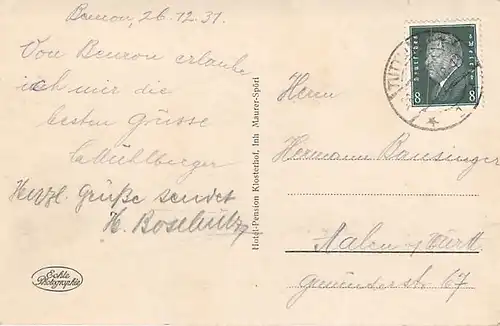 Beuron, 26.12.31.
Von Beuron erlaube
ich mir die
besten Grüsse
EMühlberger
Herzl. Grüße sendet
H. Bosch
Echte
Photographie
Hotel-Pension Klosterhof, Inh Maurer-Spörl
DEUTSCHES REICH
8 8
TUTT
Herrn
Hermann Bausinger
Aalen / Württ
Gmünderstr. 67